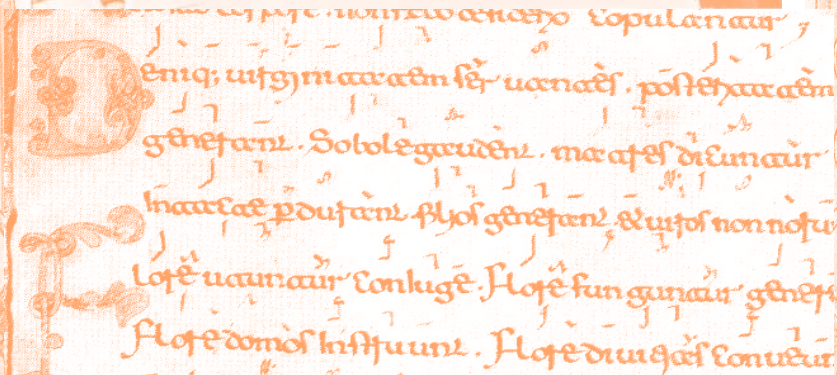 copulantur
Deniq; uirginitatem seruantes . posteritatem
generant . Sobole gaudent . matres dicuntur
Intactae p̄durant filios generant & uiros non noru
Flore utuntur coniuge . Flore funguntur gener
Flore domos instruunt . Flore diuitias conueu